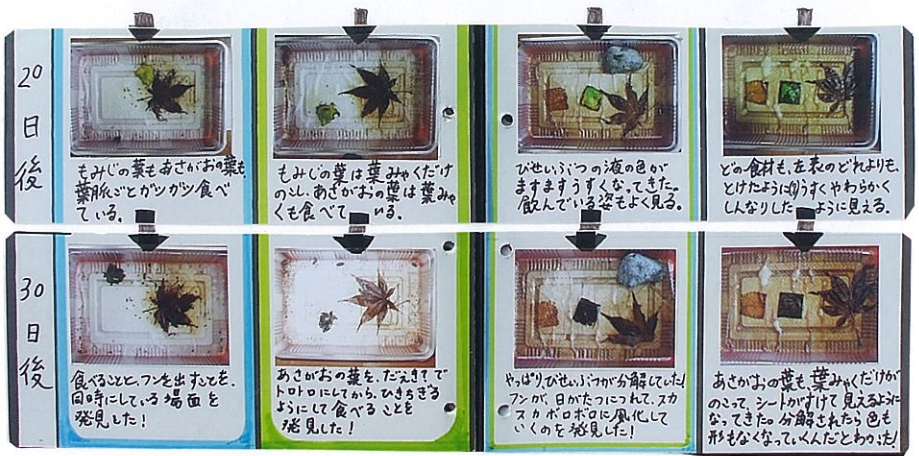 20
日
後
もみじの葉もあさがおの葉も、
葉脈ごとガツガツ食べ
ている。
もみじの葉は葉みゃくだけ
のこし、あさがおの葉は葉みゃ
くも食べている。
びせいぶつの液の色が
ますますうすくなってきた。
飲んでいる姿もよく見る。
どの食材も、左表のどれよりも、
とけたようにうすくやわらかく
しんなりしたように見える。
30
日
後
食べることと、フンを出すことを、
同時にしている場面を
発見した!
あさがおの葉を、だえきで
トロトロにしてから、ひきちぎる
ようにして食べることを
発見した!
やっぱり、びせいぶつが分解していた!
フンが、日がたつにつれて、スカ
スカボロボロに風化して
いくのを発見した!
あさがおの葉も、葉みゃくだけが
のこって、シートがすけて見えるように
なってきた。分解されたら色も
形もなくなっていくんだとわかった!